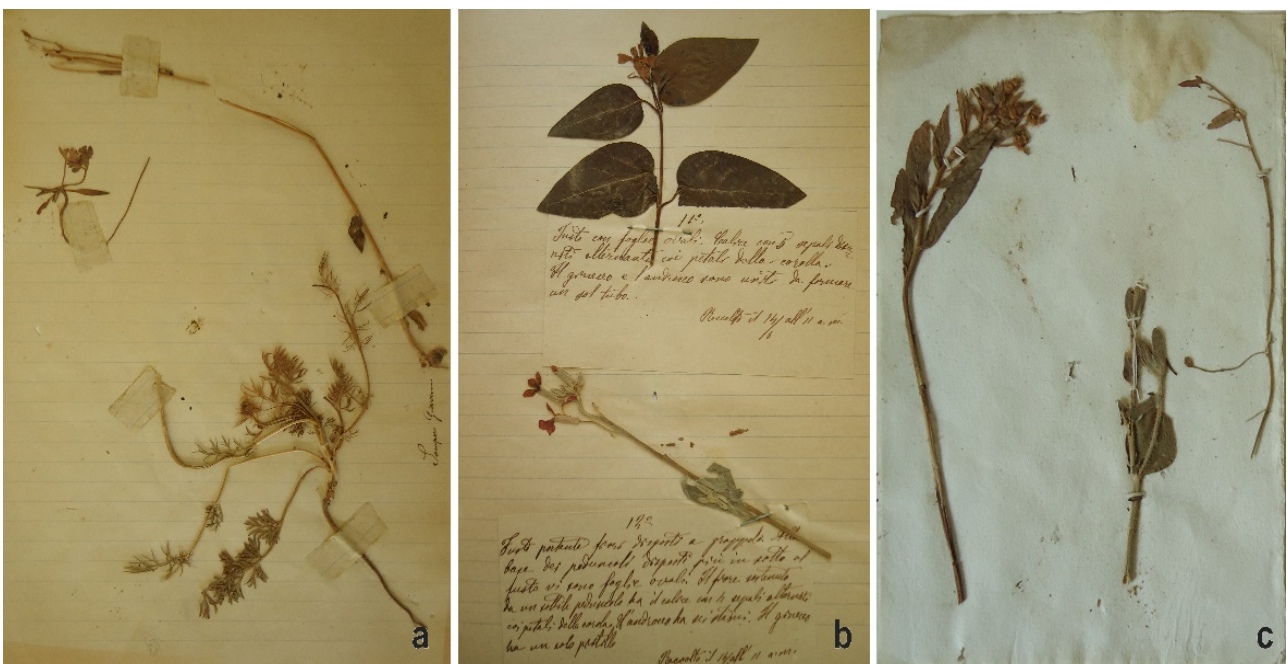 a
11º
Fusto con foglie ovali. Calice con 5 sepali
alternati coi petali della corolla.
Il gineceo e l'androceo sono uniti da formare
un sol tubo.
Raccolto il 14/ all' 11 a. m.
12º
Fusto portante fiori disposti a grappolo. Alla
base dei peduncoli disposti più in sotto al
fusto vi sono foglie ovali. Il fiore sostenuto
da un sottile peduncolo ha il calice con 4 sepali alternati
coi petali della corola, L'androceo ha sei stami. Il gineceo
ha un solo pistillo
Raccolto il 14/ all' 11 a. m.
b
c